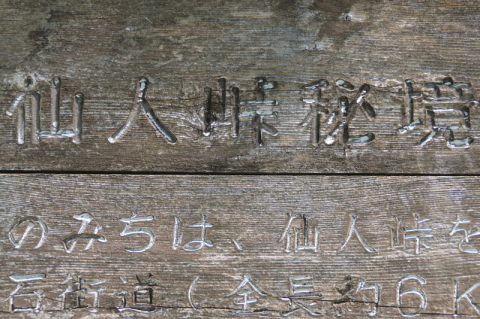 仙人峠秘境
のみちは、仙人峠を
石街道（全長約６Ｋ